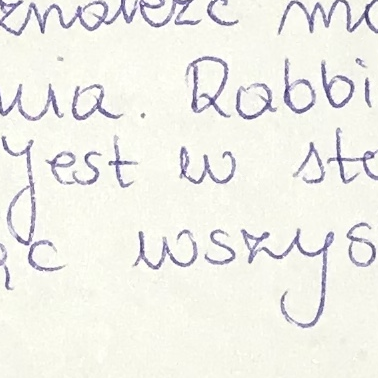 znaleźć mo
nia. Rabbi
jest w ste
ąc wszys